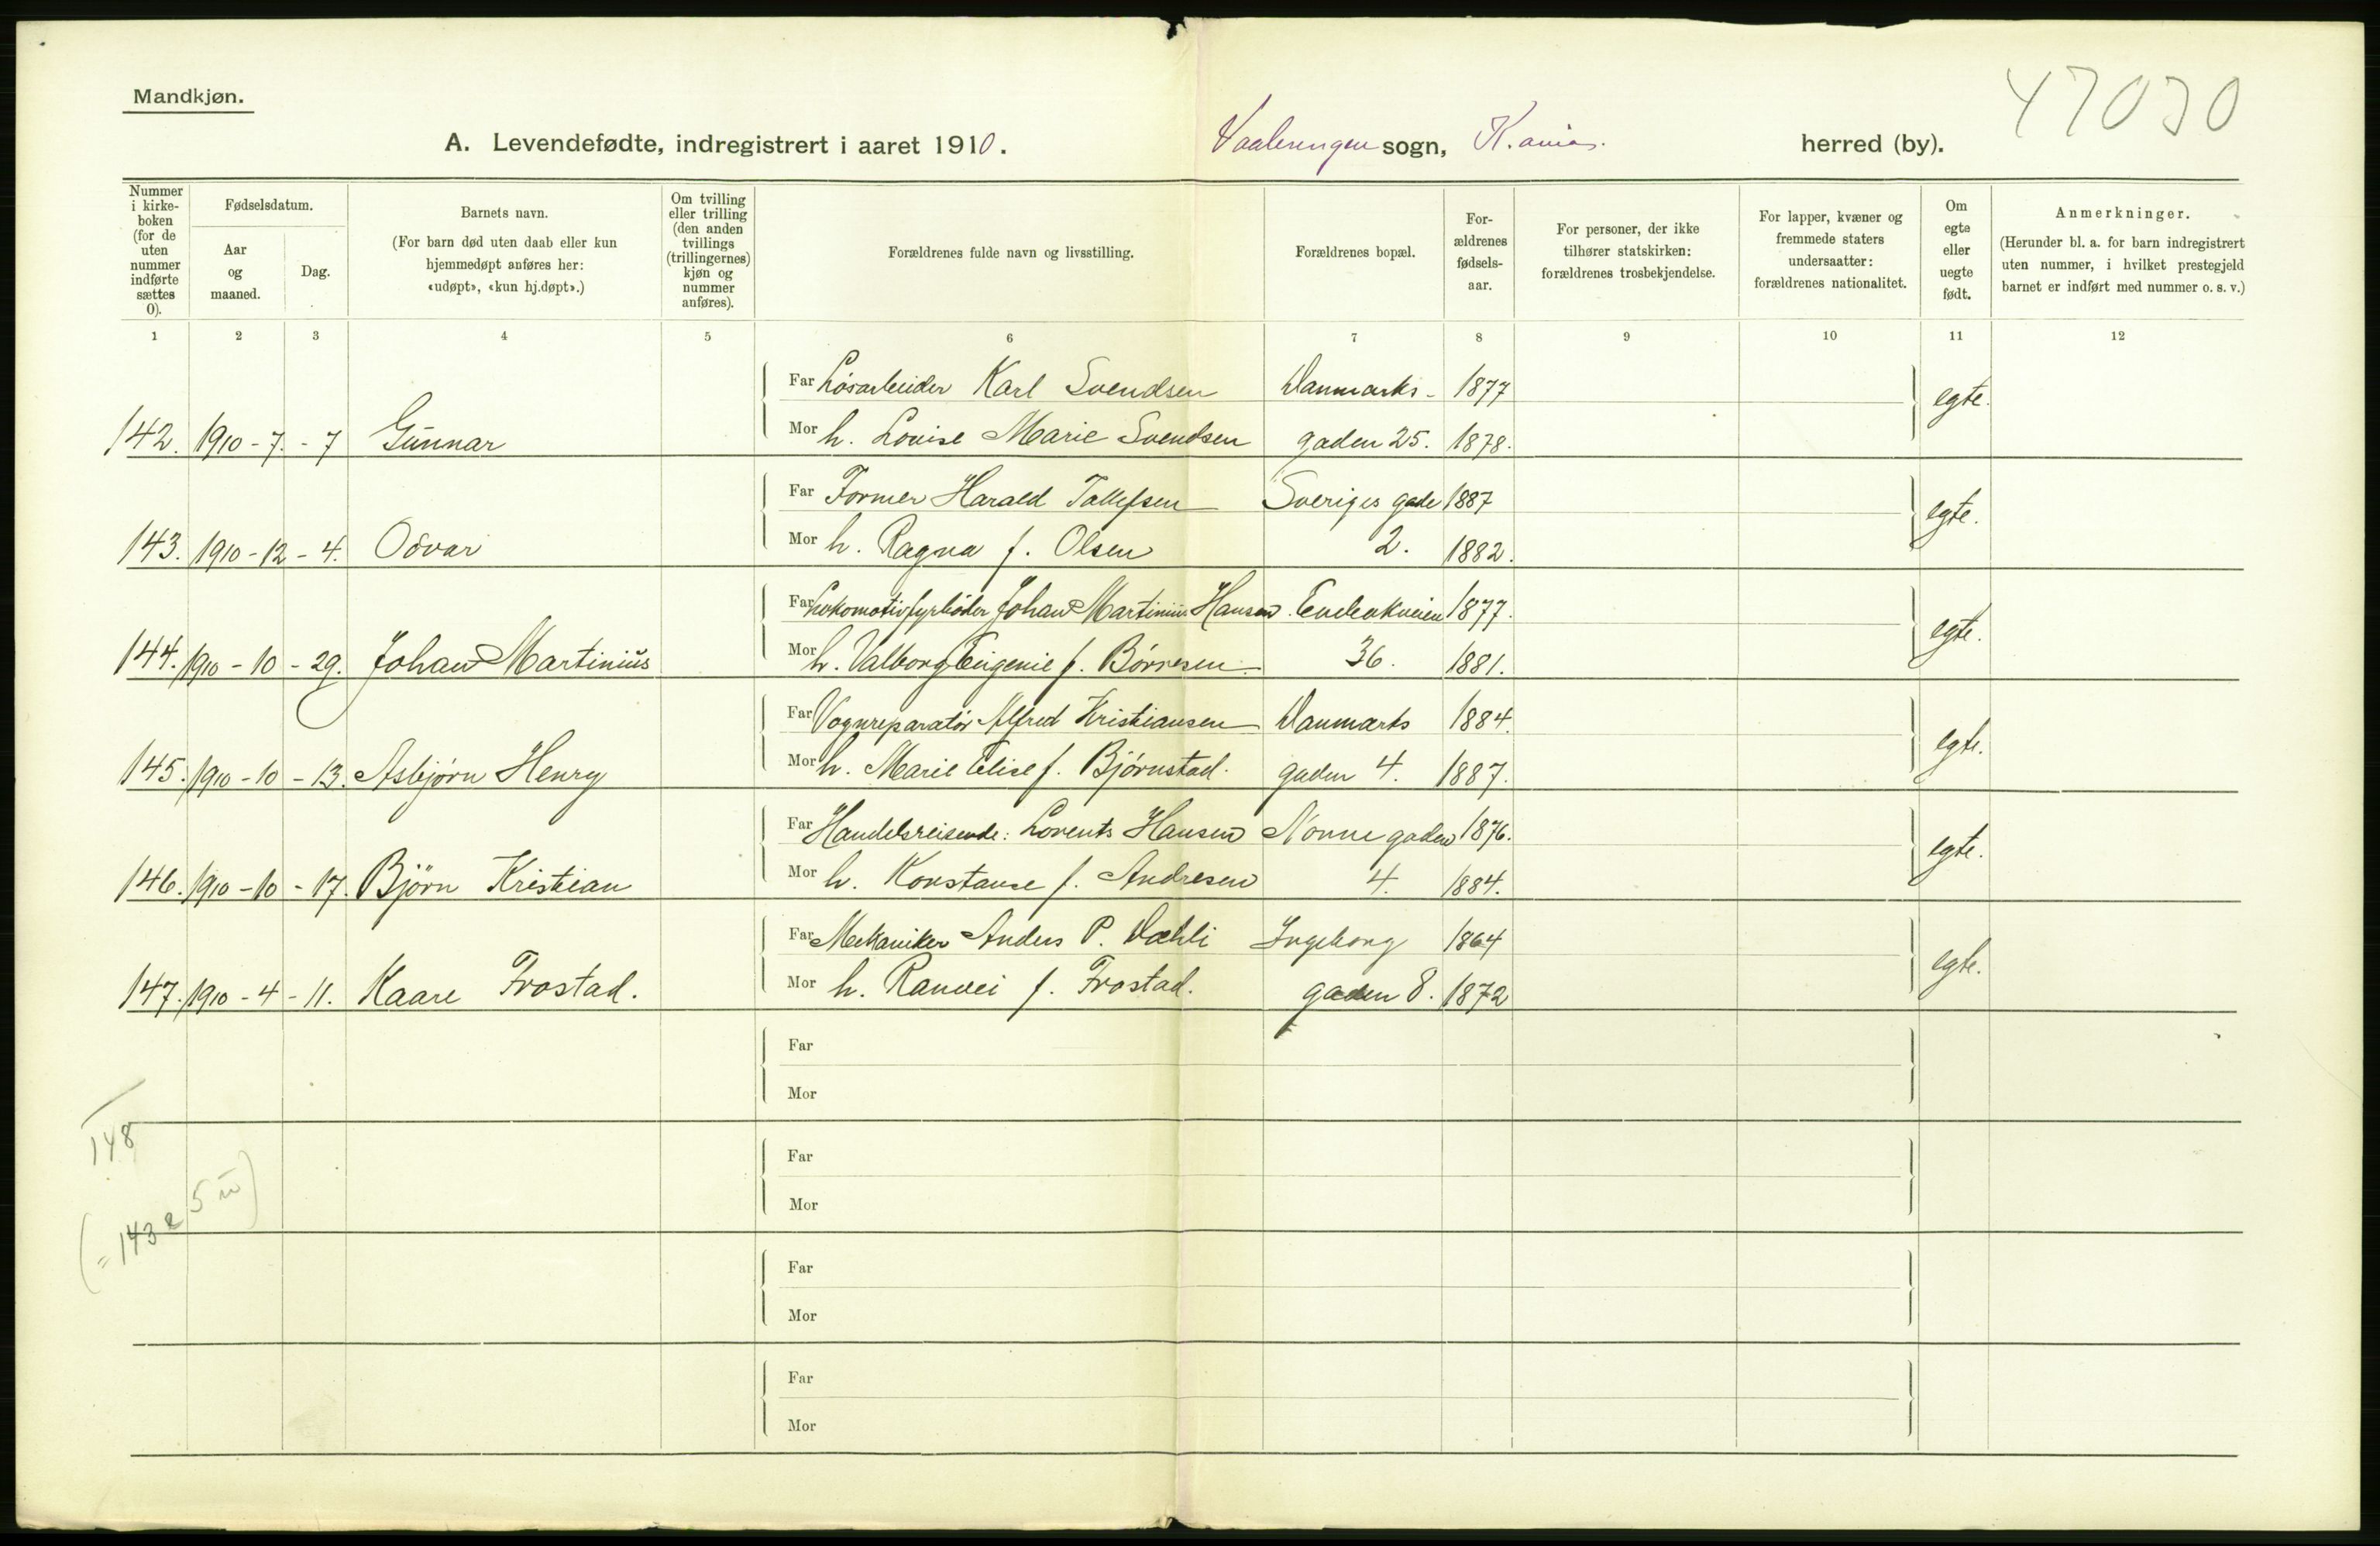 Mandkjøn.
47030
A. Levendefødte, indregistrert i aaret 1910. Vaalerengen sogn, K.ania. herred (by).
Nummer i kirke-boken (for de uten nummer indførte sættes 0).
Fødselsdatum.
Aar og maaned.
Dag.
Barnets navn.
(For barn død uten daab eller kun hjemmedøpt anføres her: «udøpt», «kun hj.døpt».)
Om tvilling eller trilling (den anden tvillings (trillingernes) kjøn og nummer anføres).
Forældrenes fulde navn og livsstilling.
Forældrenes bopæl.
For-ældrenes fødsels-aar.
For personer, der ikke tilhører statskirken: forældrenes trosbekjendelse.
For lapper, kvæner og fremmede staters undersaatter: forældrenes nationalitet.
Om egte eller uegte født.
Anmerkninger.
(Herunder bl. a. for barn indregistrert uten nummer, i hvilket prestegjeld barnet er indført med nummer o. s. v.)
1 2 3 4 5 6 7 8 9 10 11 12
Far Løsarbeider Karl Svendsen Danmarks- 1877 egte.
142. 1910-7.-7 Gunnar Mor h. Lovise Marie Svendsen gaden 25. 1878.
Far Former Harald Tollefsen Sveriges gade 1887 egte.
143. 1910-12-4. Odvar Mor h. Ragna f. Olsen 2. 1882.
Far Lokomotivfyrbøder Johan Martinius Hansen Enebakveien 1877. egte.
144. 1910-10-29. Johan Martinius Mor h. Valborg Eugenie f. Børresen. 36. 1881.
Far Vognreparatør Alfred Kristiansen Danmarks 1884. egte.
145. 1910-10-13. Asbjørn Henry Mor h. Marie Elise f. Bjørnstad. gaden 4. 1887.
Far Handelsreisende: Lorents Hansen Nonnegaden 1876. egte.
146. 1910-10-17. Björn Kristian Mor h. Konstanse f. Andresen 4. 1884.
Far Mekaniker Anders P. Dæhli Ingeborg 1864 egte.
147. 1910-4-11. Kaare Frostad. Mor h. Ranvei f. Frostad. gaden 8. 1872
Far
Mor
148
Far
Mor
(=143 e 5 u)
Far
Mor
Far
Mor